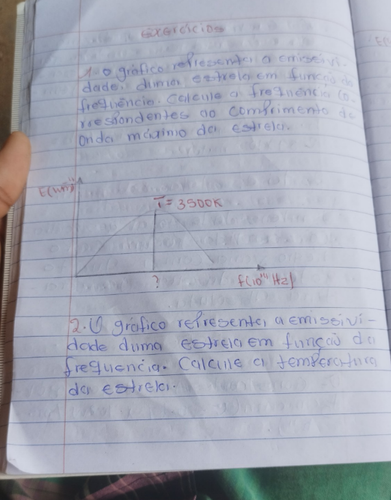 Exercicios
1. O gráfico representa a emissivi-
dade duma estrela em função da
frequência. Calcule a frequência co-
rrespondentes ao comprimento de
onda máximo da estrela.
T = 3500K
?
f(10¹⁴ Hz)
2. O gráfico representa a emissivi-
dade duma estrela em função da
frequencia. Calcule a temperatura
da estrela.